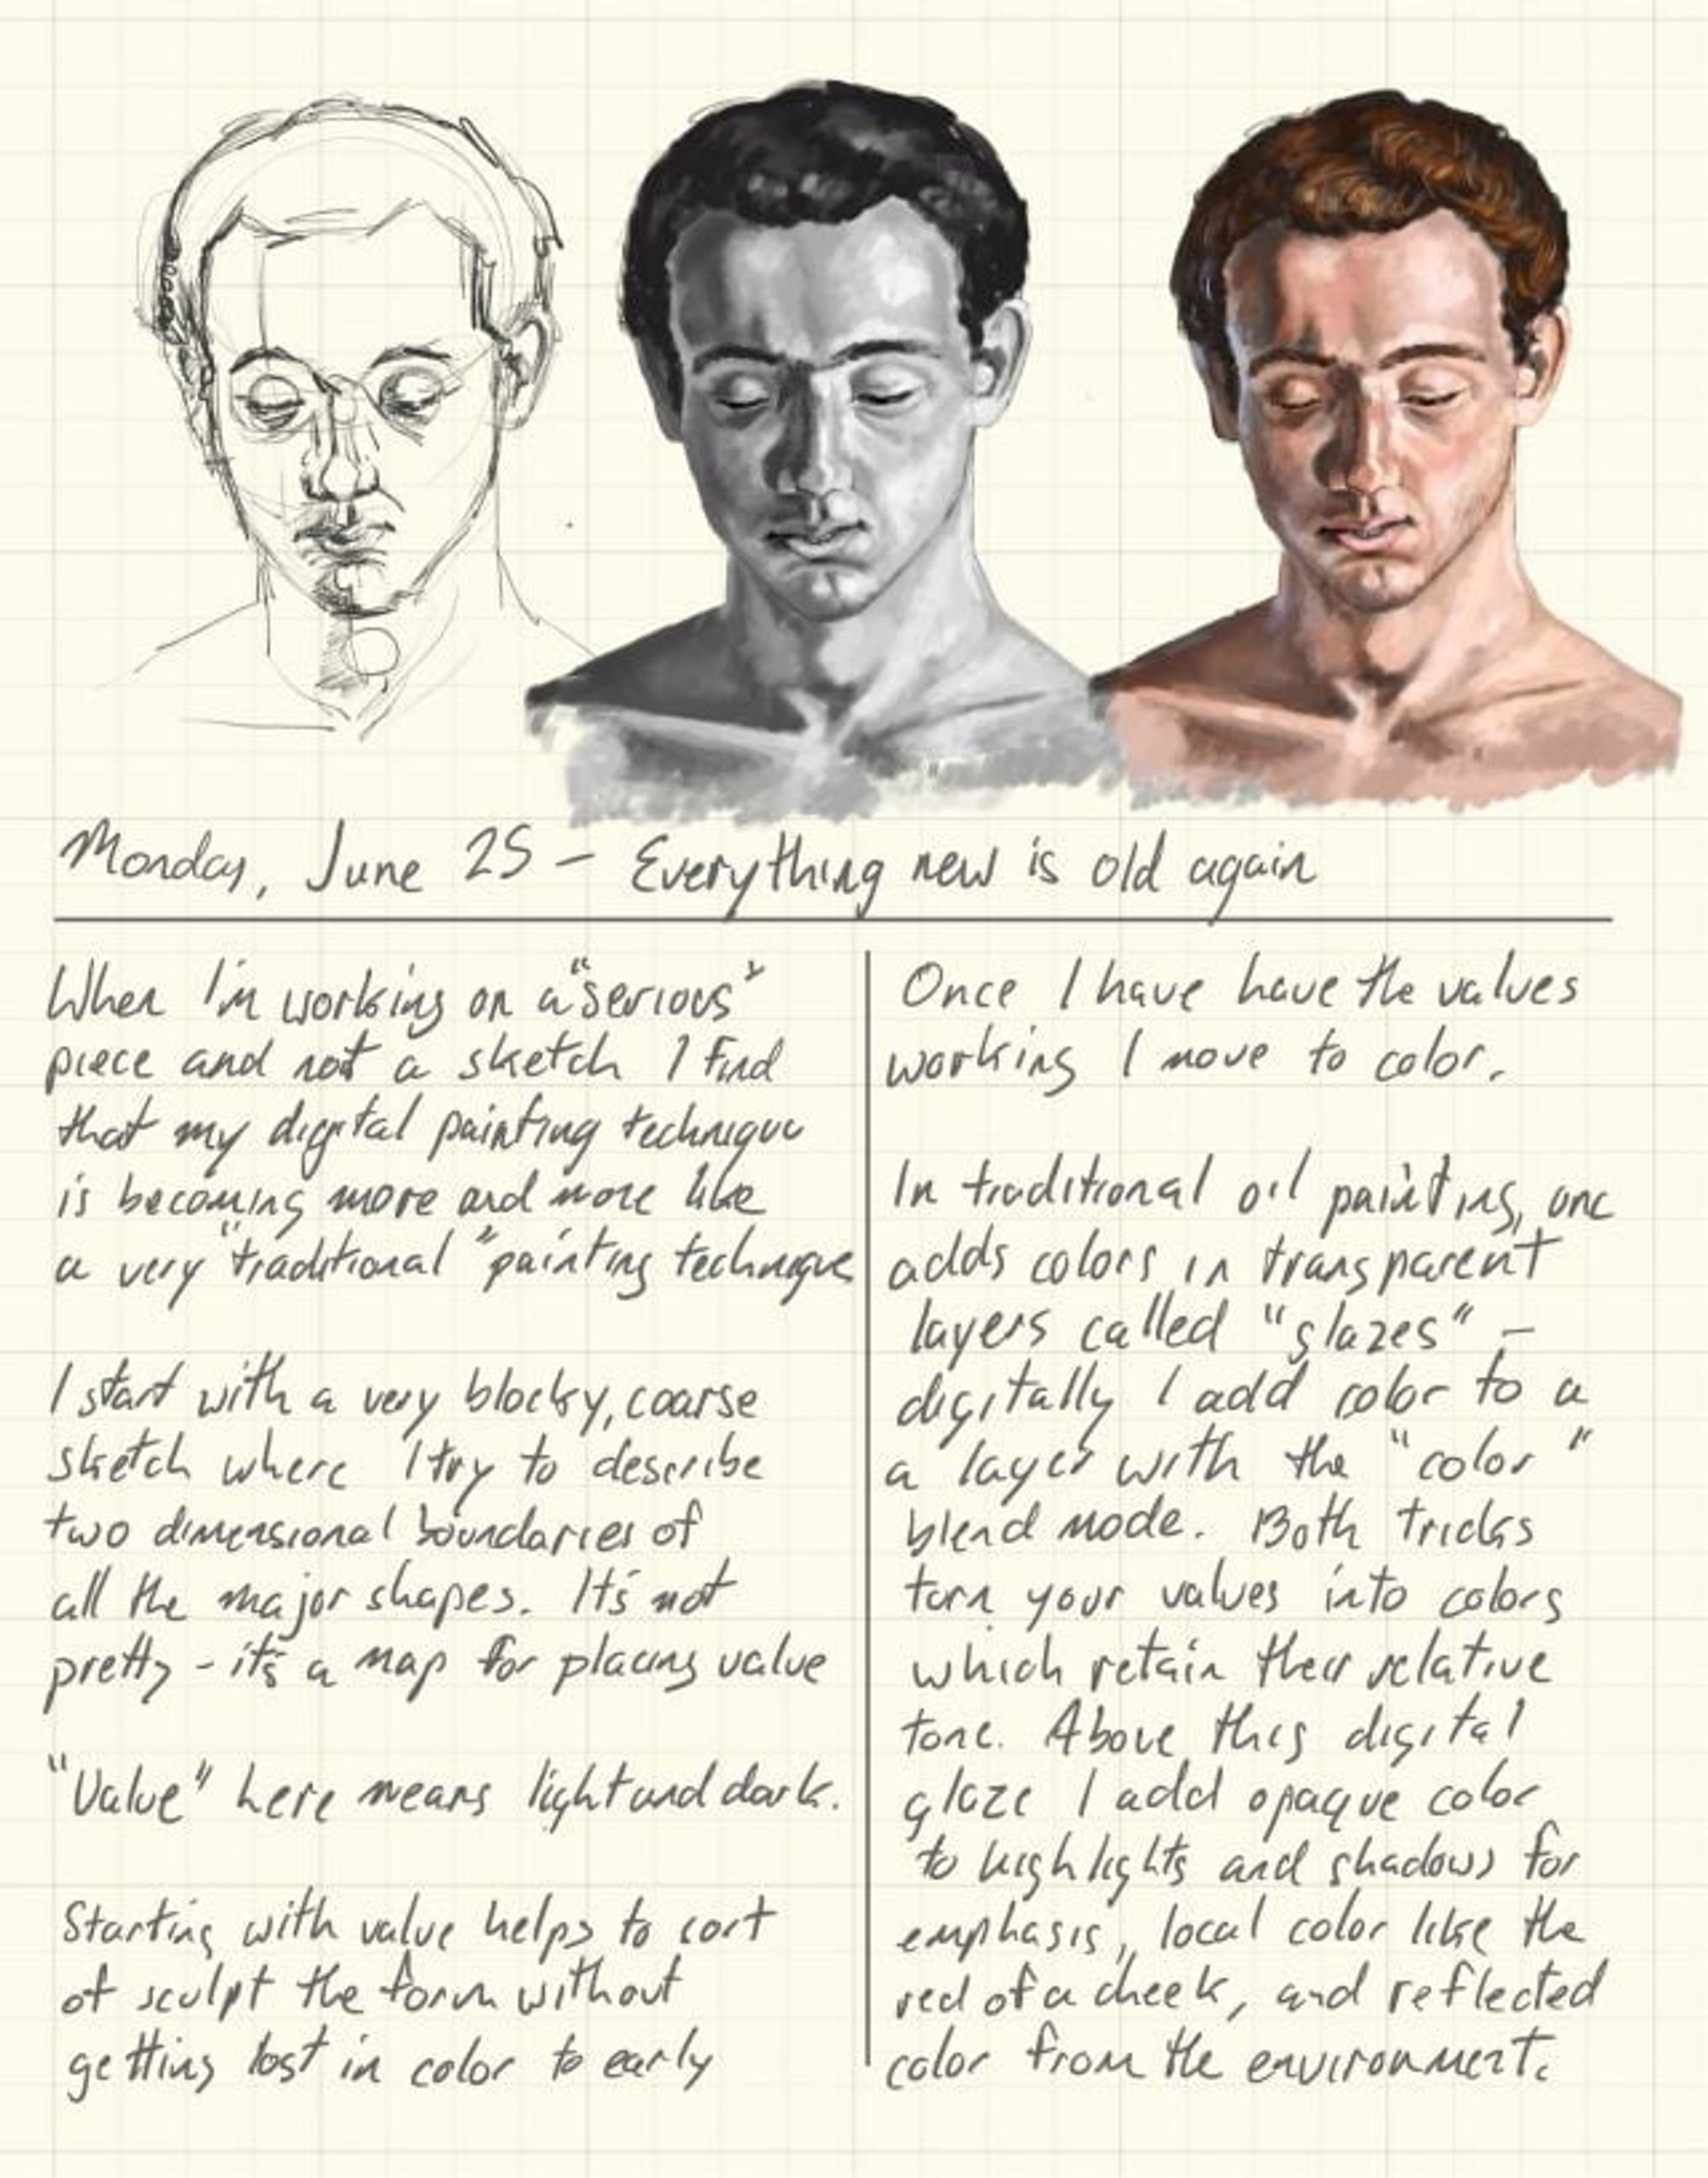 Monday, June 25 – Everything new is old again
When I'm working on a "serious"
piece and not a sketch I find
that my digital painting technique
is becoming more and more like
a very "traditional" painting technique
I start with a very blocky, coarse
sketch where I try to describe
two dimensional boundaries of
all the major shapes. It's not
pretty - it's a map for placing value
"Value" here means light and dark.
Starting with value helps to sort
of sculpt the form without
getting lost in color to early
Once I have have the values
working I move to color.
In traditional oil painting, one
adds colors in transparent
layers called "glazes" –
digitally I add color to a
a layer with the "color"
blend mode. Both tricks
turn your values into colors
which retain their relative
tone. Above this digital
glaze I add opaque color
to highlights and shadows for
emphasis, local color like the
red of a cheek, and reflected
color from the environment.